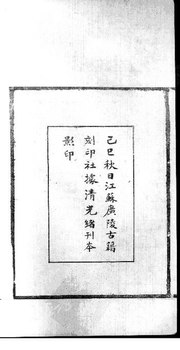 己巳秋日江蘇廣陵古籍
刻印社據清光緒刊本
影印